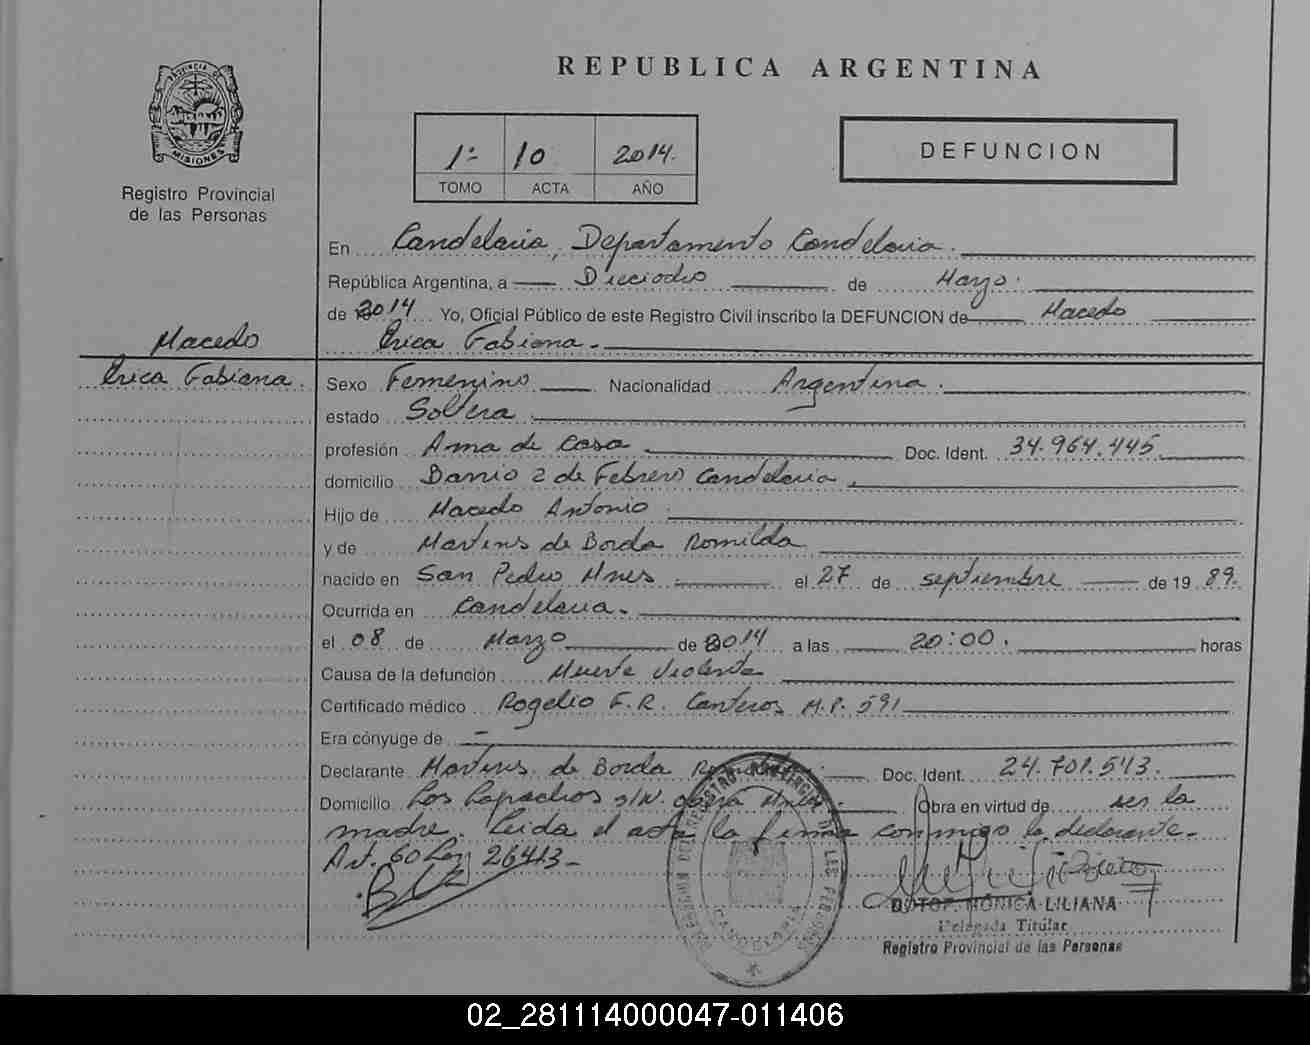 REPUBLICA ARGENTINA
PROVINCIA DE
MISIONES
Registro Provincial
de las Personas
1º 10 2014.
TOMO ACTA AÑO
DEFUNCION
En Candelaria, Departamento Candelaria.
República Argentina, a Dieciocho de Marzo.
de 2014 Yo, Oficial Público de este Registro Civil inscribo la DEFUNCION de Macedo
Erica Fabiana.
Macedo
Erica Fabiana.
Sexo Femenino Nacionalidad Argentina.
estado Soltera
profesión Ama de Casa Doc. Ident. 34.964.445
domicilio Barrio 2 de Febrero Candelaria
Hijo de Macedo Antonio
y de Martins de Borda Romilda
nacido en San Pedro Mnes el 27 de septiembre de 19 89.
Ocurrida en Candelaria.
el 08 de Marzo de 2014 a las 20:00. horas
Causa de la defunción Muerte Violenta
Certificado médico Rogelio F.R. Canteros M.P. 591
Era cónyuge de -
Declarante Martins de Borda Romilda Doc. Ident. 24.701.513.
Domicilio Los Lapachos s/N. Obra en virtud de ser la
madre. Leida el acta la firma conmigo la declarante.
Art. 60 Ley 26413-
DEL REGISTRO PROVINCIAL DE LAS PERSONAS
CANDELARIA
MONICA LILIANA
Delegada Titular
Registro Provincial de las Personas
02_281114000047-011406